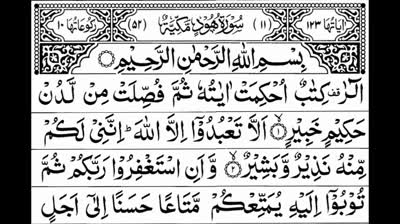 اٰيَاتُهَا ١٢٣ (١١) سُوْرَةُ هُوْدٍ مَكِّيَّةٌ (٥٢) رُكُوْعَاتُهَا ١٠
بِسْمِ اللّٰهِ الرَّحْمٰنِ الرَّحِيْمِ
الٓرٰ ۫ كِتٰبٌ اُحْكِمَتْ اٰيٰتُهٗ ثُمَّ فُصِّلَتْ مِنْ لَّدُنْ
حَكِيْمٍ خَبِيْرٍ ۙ‏﴿۱﴾ اَلَّا تَعْبُدُوْۤا اِلَّا اللّٰهَ ؕ اِنَّنِیْ لَكُمْ
مِّنْهُ نَذِيْرٌ وَّبَشِيْرٌ ۙ‏﴿۲﴾ وَّاَنِ اسْتَغْفِرُوْا رَبَّكُمْ ثُمَّ
تُوْبُوْۤا اِلَيْهِ يُمَتِّعْكُمْ مَّتَاعًا حَسَنًا اِلٰۤی اَجَلٍ